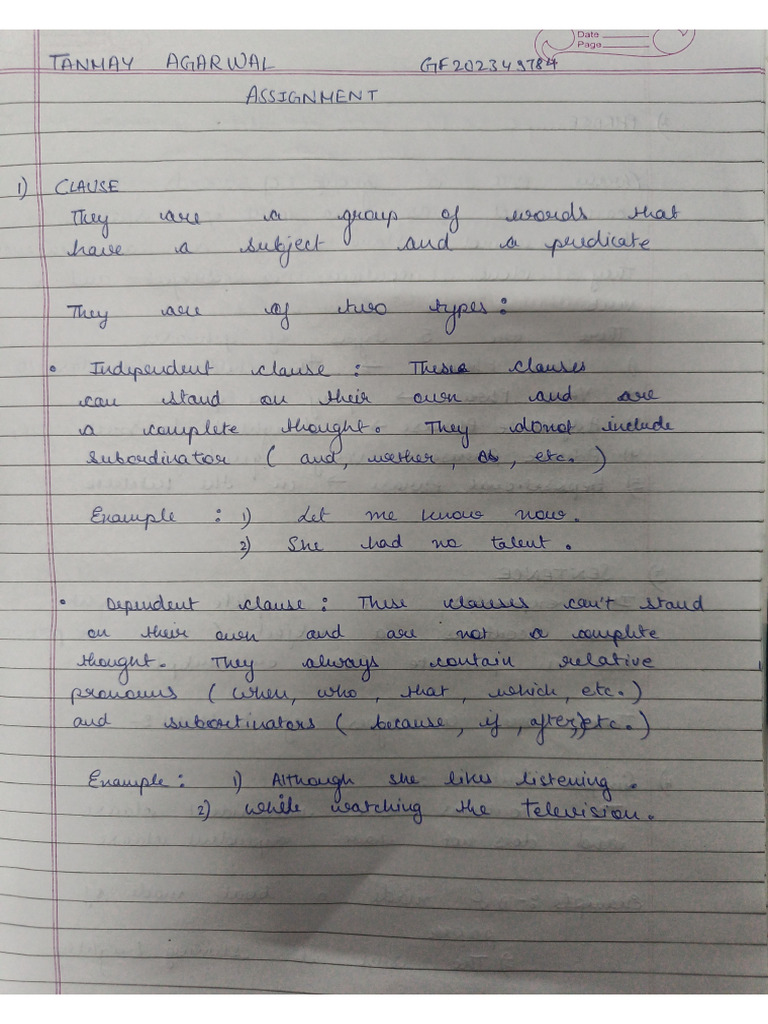 Date
Page
TANMAY AGARWAL GF202349784
ASSIGNMENT
1) CLAUSE
They are a group of words that
have a subject and a predicate
They are of two types:
• Independent clause : These clauses
can stand on their own and are
a complete thought. They donot include
subordinator ( and, wether, as, etc. )
Example : 1) Let me know now.
2) She had no talent.
• Dependent clause : These clauses can't stand
on their own and are not a complete
thought. They always contain relative
pronouns ( when, who, that, which, etc. )
and subortinators ( because, if, after, etc. )
Example : 1) Although she likes listening.
2) while watching the television.